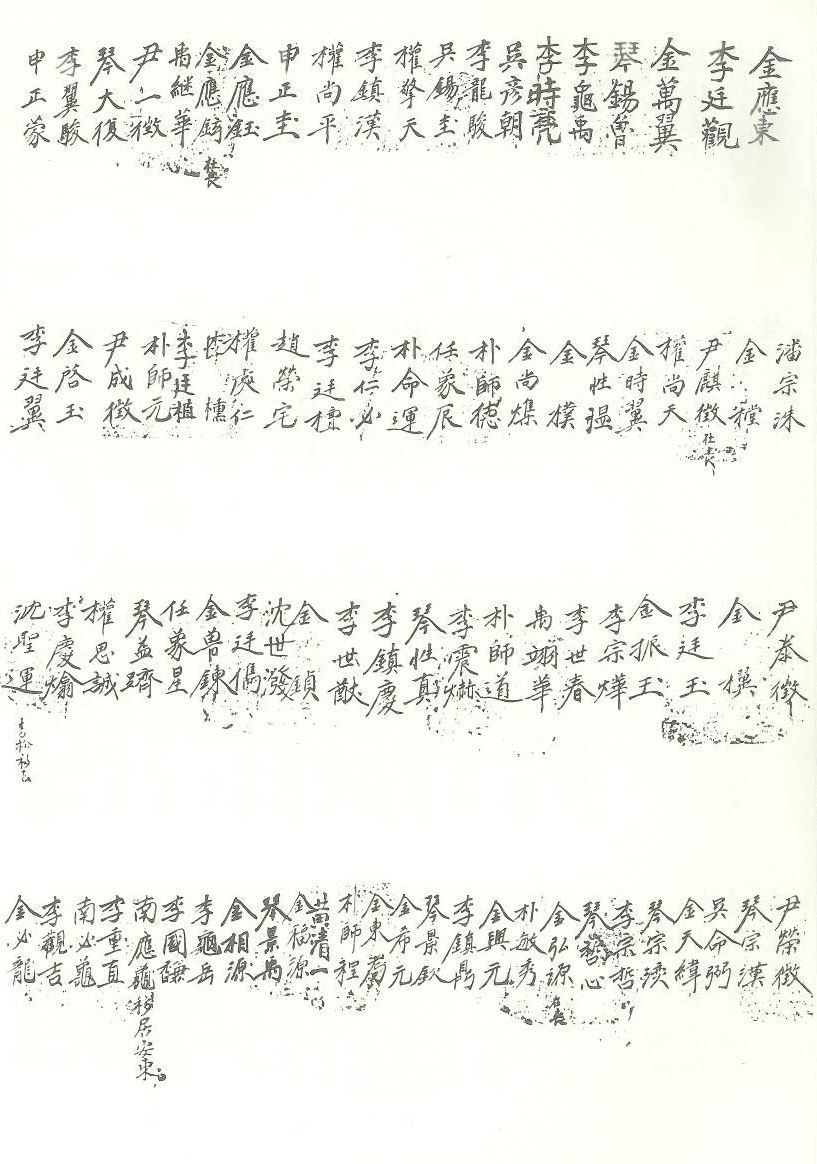 金應東
李廷觀
金萬翼
琴錫魯
李龜禹
李時
吳彦朝
李龍駿
吳錫圭
權擎天
李鎮漢
權尚平
申正圭
金應鈺
金應錡
禹継華
尹一徵
琴大復
李翼駿
申正蒙
潘宗洙
金樘
尹麒徵
權尚天
金時翼
琴性瑥
金樸
金尚㷜
朴師德
任象辰
朴命運
李仁必
李廷樻
趙榮宅
權處仁
李櫄
李廷植
朴師元
尹成徵
金啓玉
李廷翼
尹泰徵
金㰎
李廷玉
金振玉
李宗燁
李世春
禹翊華
朴師道
李震
琴性真
李鎮慶
李世猷
金鎮
沈世潑
李廷僑
金魯鍊
任蒙星
琴益躋
權思誠
李慶爚
沈聖運
青松移去
尹榮徵
琴宗漢
吳命弼
金天緯
琴宗濱
李宗哲
琴愁心
金弘源
朴敏秀
金興元
李鎮鼎
琴景欽
金希元
金東
朴師程
黃清一
金福源
琴景禹
金相源
李龜岳
李國馣
南應龍移居安東
李重直
南必龜
李觀吉
金必龍